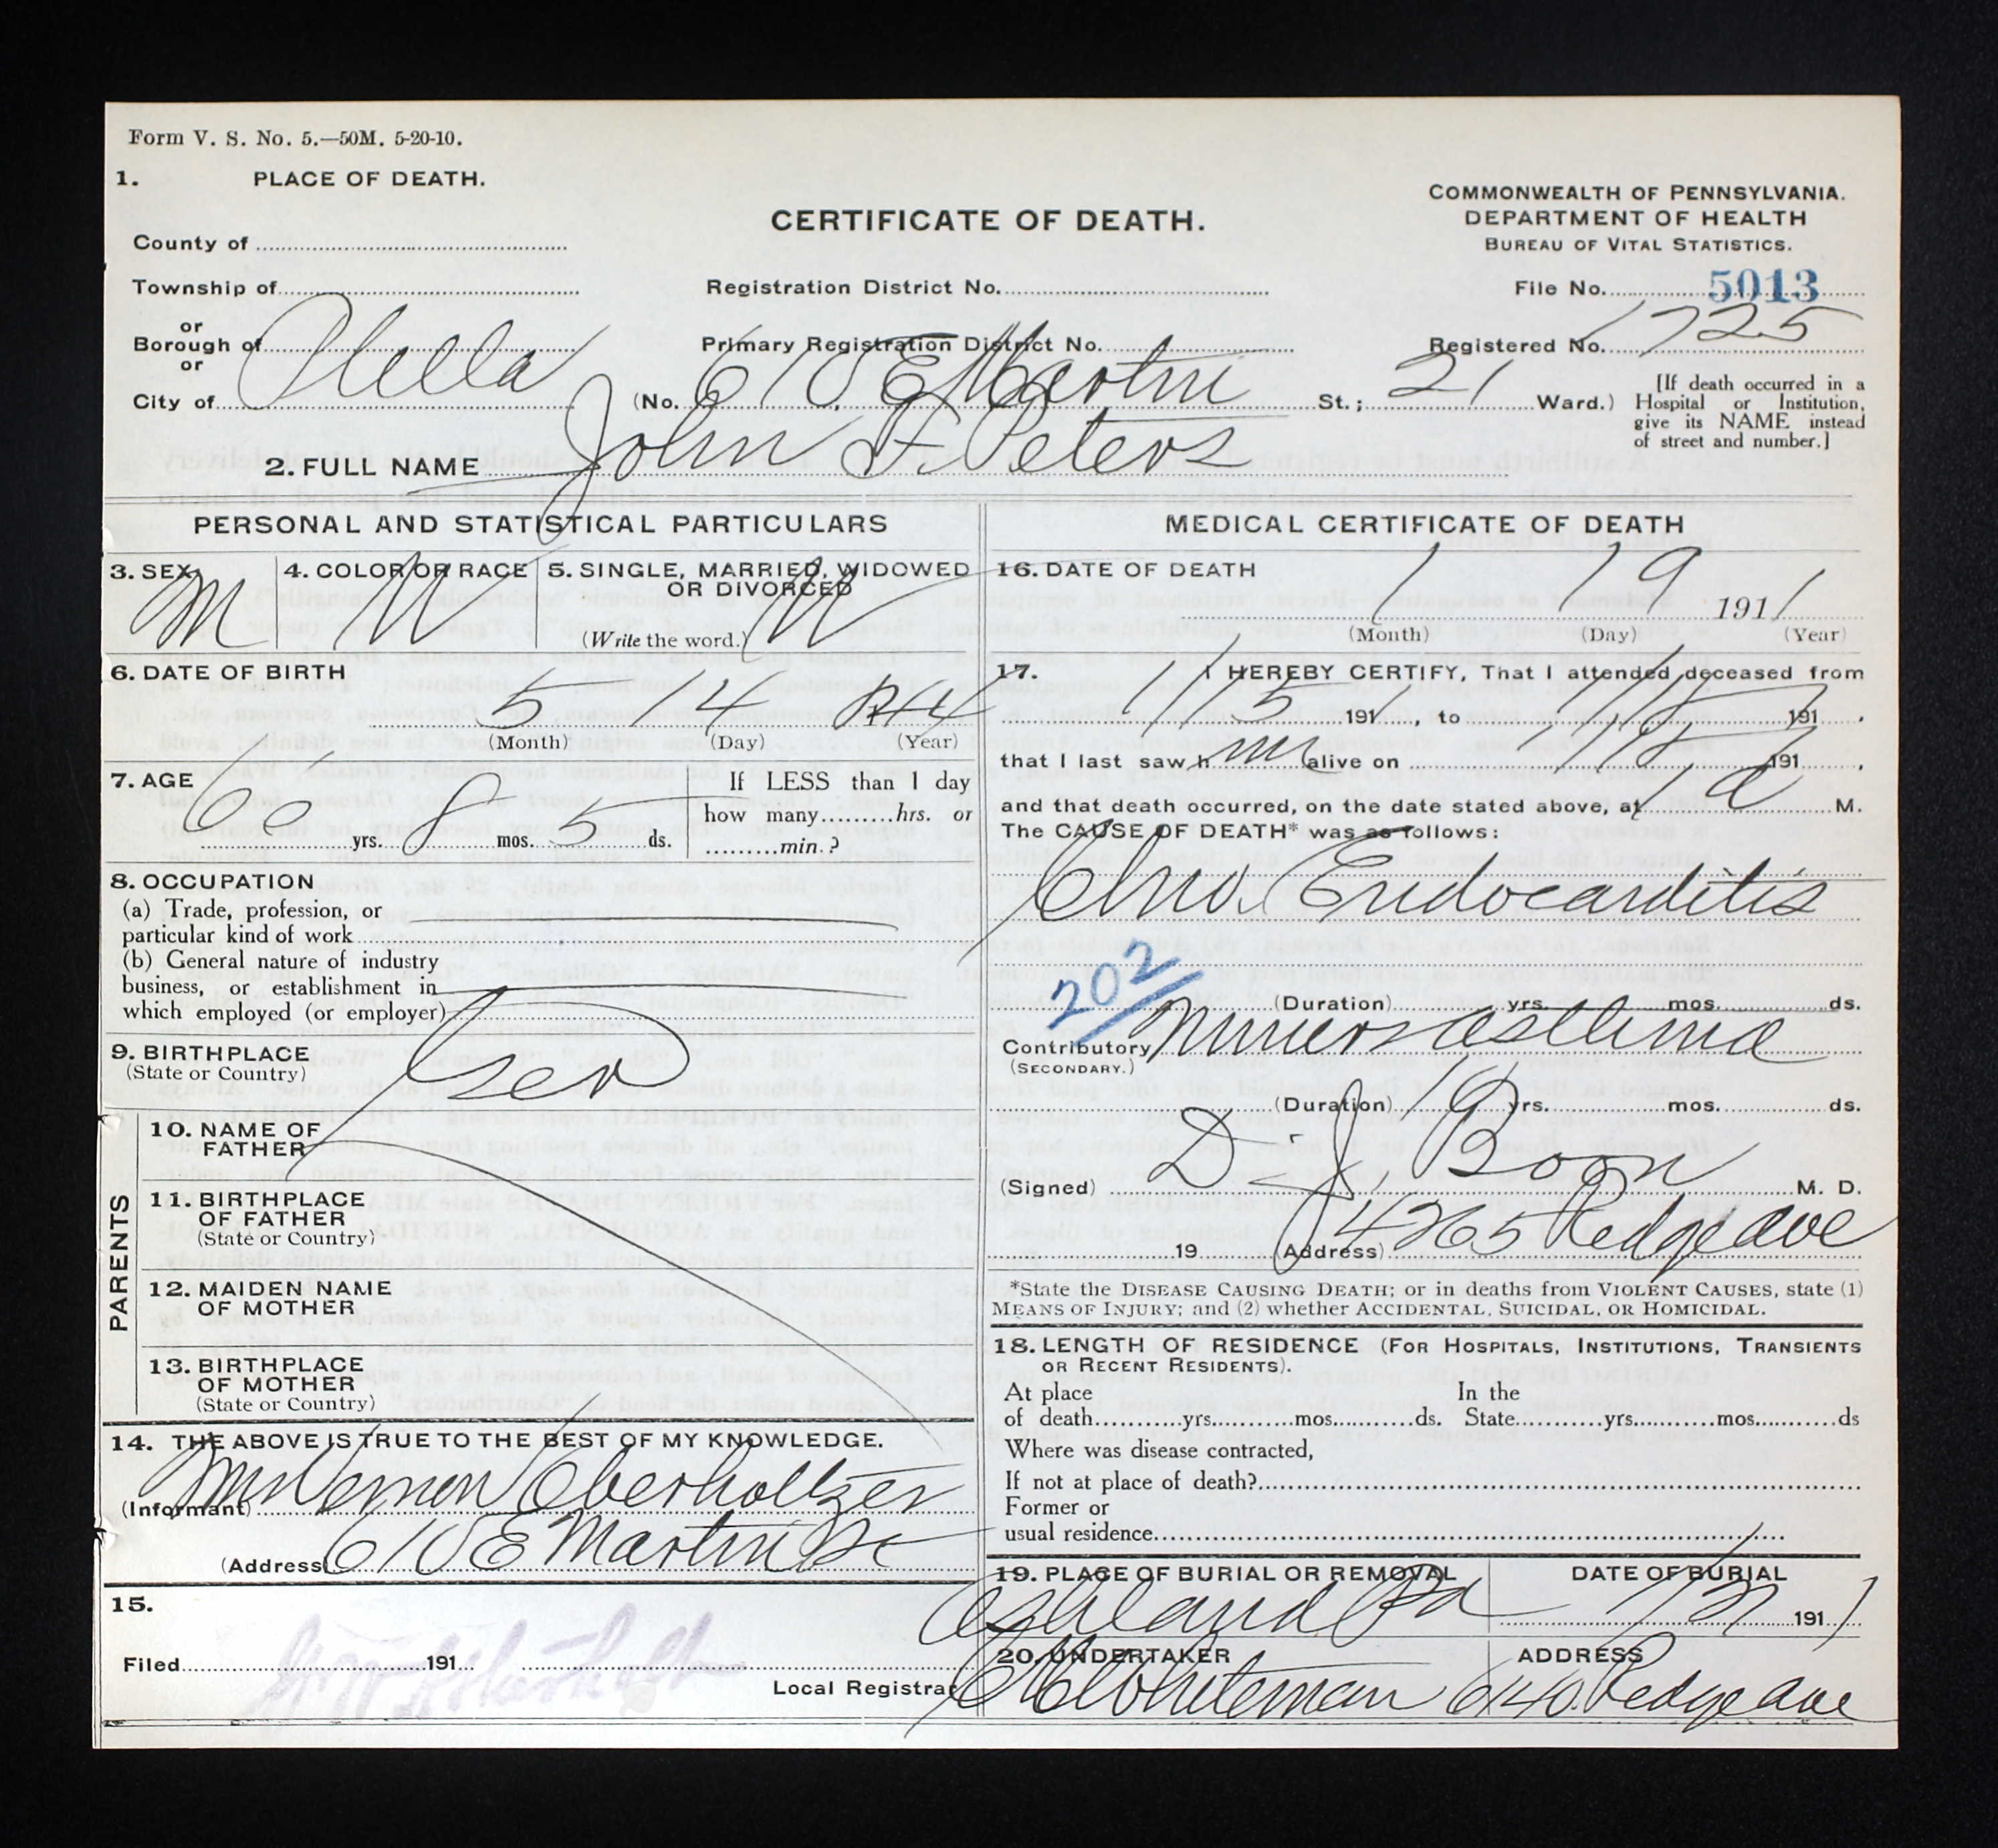 Form V. S. No. 5.—50M. 5-20-10.
1. PLACE OF DEATH.
County of
Township of
or
Borough of
or
City of Phila
CERTIFICATE OF DEATH.
COMMONWEALTH OF PENNSYLVANIA.
DEPARTMENT OF HEALTH
BUREAU OF VITAL STATISTICS.
Registration District No.
File No. 5013
Primary Registration District No.
Registered No. 1725
(No. 610 E Martin St.; 21 Ward.)
[If death occurred in a
Hospital or Institution,
give its NAME instead
of street and number.]
2. FULL NAME John F. Peters
PERSONAL AND STATISTICAL PARTICULARS
3. SEX M
4. COLOR OR RACE W
5. SINGLE, MARRIED, WIDOWED
OR DIVORCED
(Write the word.)
6. DATE OF BIRTH
5 14 1844
(Month) (Day) (Year)
7. AGE
66 yrs. 8 mos. 5 ds.
If LESS than 1 day
how many.........hrs. or
.........min.?
8. OCCUPATION
(a) Trade, profession, or
particular kind of work
(b) General nature of industry
business, or establishment in
which employed (or employer)
9. BIRTHPLACE
(State or Country)
Ger
PARENTS
10. NAME OF
FATHER
11. BIRTHPLACE
OF FATHER
(State or Country)
12. MAIDEN NAME
OF MOTHER
13. BIRTHPLACE
OF MOTHER
(State or Country)
14. THE ABOVE IS TRUE TO THE BEST OF MY KNOWLEDGE.
(Informant) Oberholtzer
(Address) 610 E Martin St
15.
Filed 191
Local Registrar
MEDICAL CERTIFICATE OF DEATH
16. DATE OF DEATH
1 19 1911
(Month) (Day) (Year)
17. I HEREBY CERTIFY, That I attended deceased from
1/15 191 , to 1/18 191 ,
that I last saw him alive on 1/18 191 ,
and that death occurred, on the date stated above, at 1 a M.
The CAUSE OF DEATH* was as follows:
Endocarditis
202
(Duration) yrs. mos. ds.
Contributory Miners asthma
(SECONDARY.)
(Duration) yrs. mos. ds.
(Signed) D. J. Boon M. D.
19 (Address) 4265 Redge ave
*State the DISEASE CAUSING DEATH; or in deaths from VIOLENT CAUSES, state (1)
MEANS OF INJURY; and (2) whether ACCIDENTAL, SUICIDAL, OR HOMICIDAL.
18. LENGTH OF RESIDENCE (FOR HOSPITALS, INSTITUTIONS, TRANSIENTS
OR RECENT RESIDENTS).
At place In the
of death..........yrs..........mos..........ds. State..........yrs..........mos..........ds
Where was disease contracted,
If not at place of death?
Former or
usual residence
19. PLACE OF BURIAL OR REMOVAL
Ashland Pa
DATE OF BURIAL
191 1
20. UNDERTAKER
Whiteman
ADDRESS
6140 Redge ave